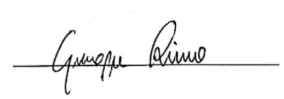 Giuseppe Rinno